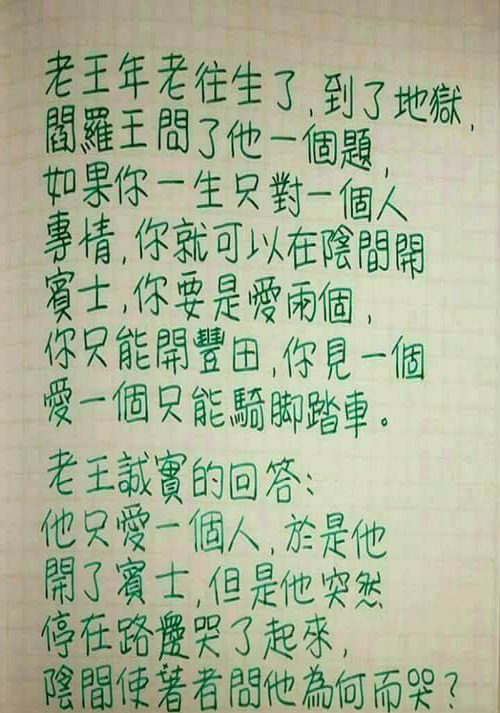 老王年老往生了,到了地獄,
閻羅王問了他一個題,
如果你一生只對一個人
專情,你就可以在陰間開
賓士,你要是愛兩個,
你只能開豐田,你見一個
愛一個只能騎腳踏車。
老王誠實的回答:
他只愛一個人,於是他
開了賓士,但是他突然
停在路邊哭了起來,
陰間使著者問他為何而哭?